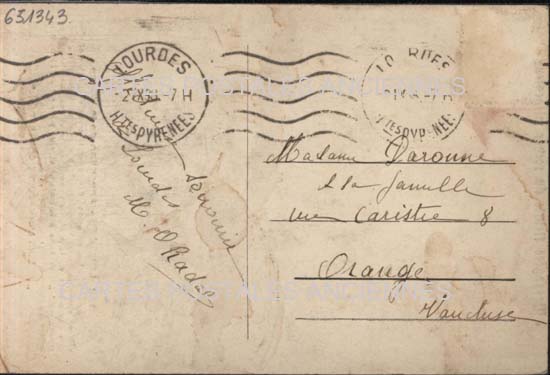 651343
LOURDES
2 X 31-7H
HTES PYRENEES
LOURDES
7H
HTES PYRENEES
CARTES POSTALES ANCIENNES
Souvenir
de Lourdes
M.
Madame Daronne
& la famille
rue Caristie 8
Orange
Vaucluse
CARTES POSTALES ANCIENNES